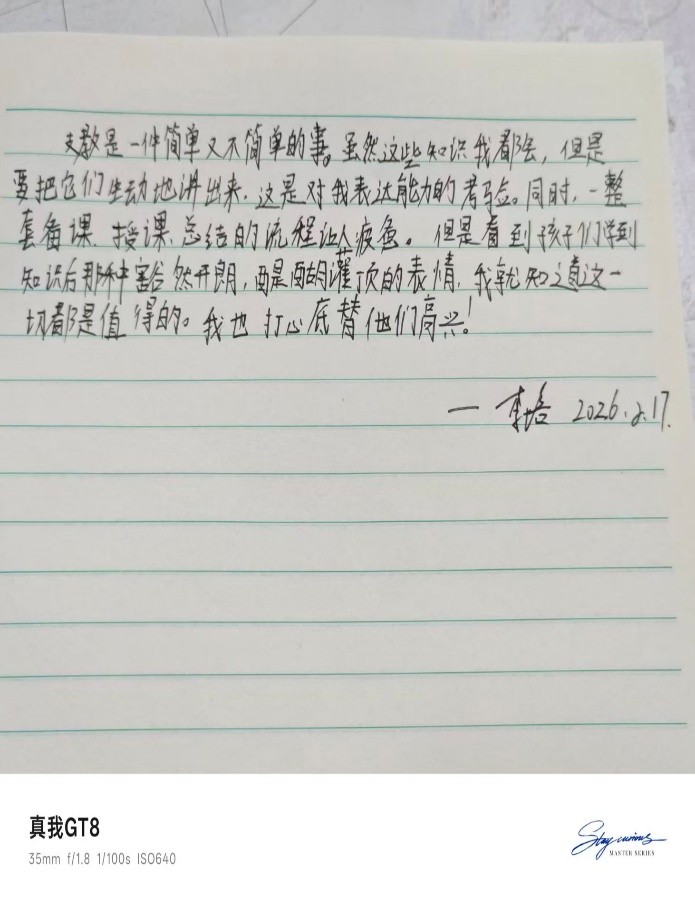 支教是一件简单又不简单的事。虽然这些知识我都会，但是
要把它们生动地讲出来，这是对我表达能力的考验。同时，一整
套备课、授课、总结的流程让人疲惫。但是看到孩子们学到
知识后那种豁然开朗，醍醐灌顶的表情，我就知道这一
切都是值得的。我也打心底替他们高兴！
— 李培 2026.2.17.
真我GT8
35mm f/1.8 1/100s ISO640
Stay curious
MASTER SERIES